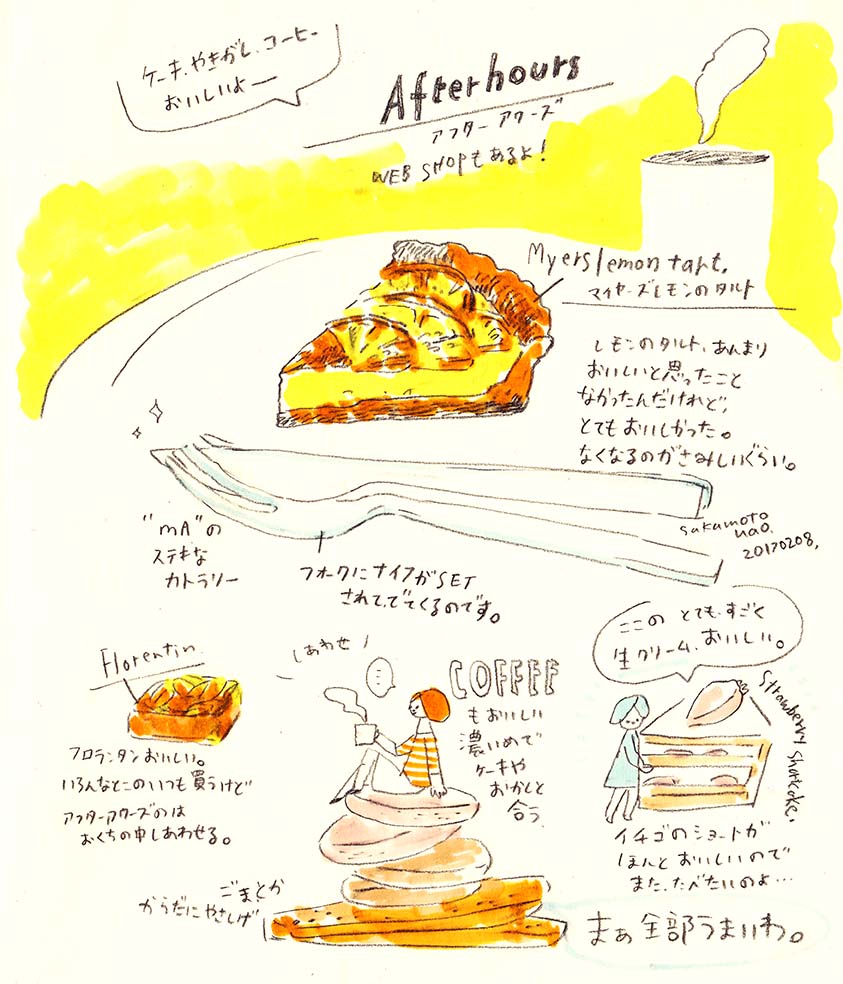 ケーキ、やきがし、コーヒー
おいしいよー
Afterhours
アフターアワーズ
WEB SHOPもあるよ!
Myers lemon tart.
マイヤーズレモンのタルト
レモンのタルト、あんまり
おいしいと思ったこと
なかったんだけれど、
とてもおいしかった。
なくなるのがさみしいぐらい。
"mA"の
ステキな
カトラリー
フォークにナイフがSET
されて、でてくるのです。
sakamoto
nao.
20170208,
Florentin.
フロランタンおいしい。
いろんなとこのいつも買うけど
アフターアワーズのは
おくちの中しあわせる。
しあわせ!
COFFEE
もおいしい
濃いめで
ケーキや
おかしと
合う.
ここの とても、すごく
生クリーム、おいしい。
Strawberry shortcake.
イチゴのショートが
ほんと おいしいので
また、たべたいのよ…
ごまとか
からだにやさしげ
まぁ全部うまいわ。